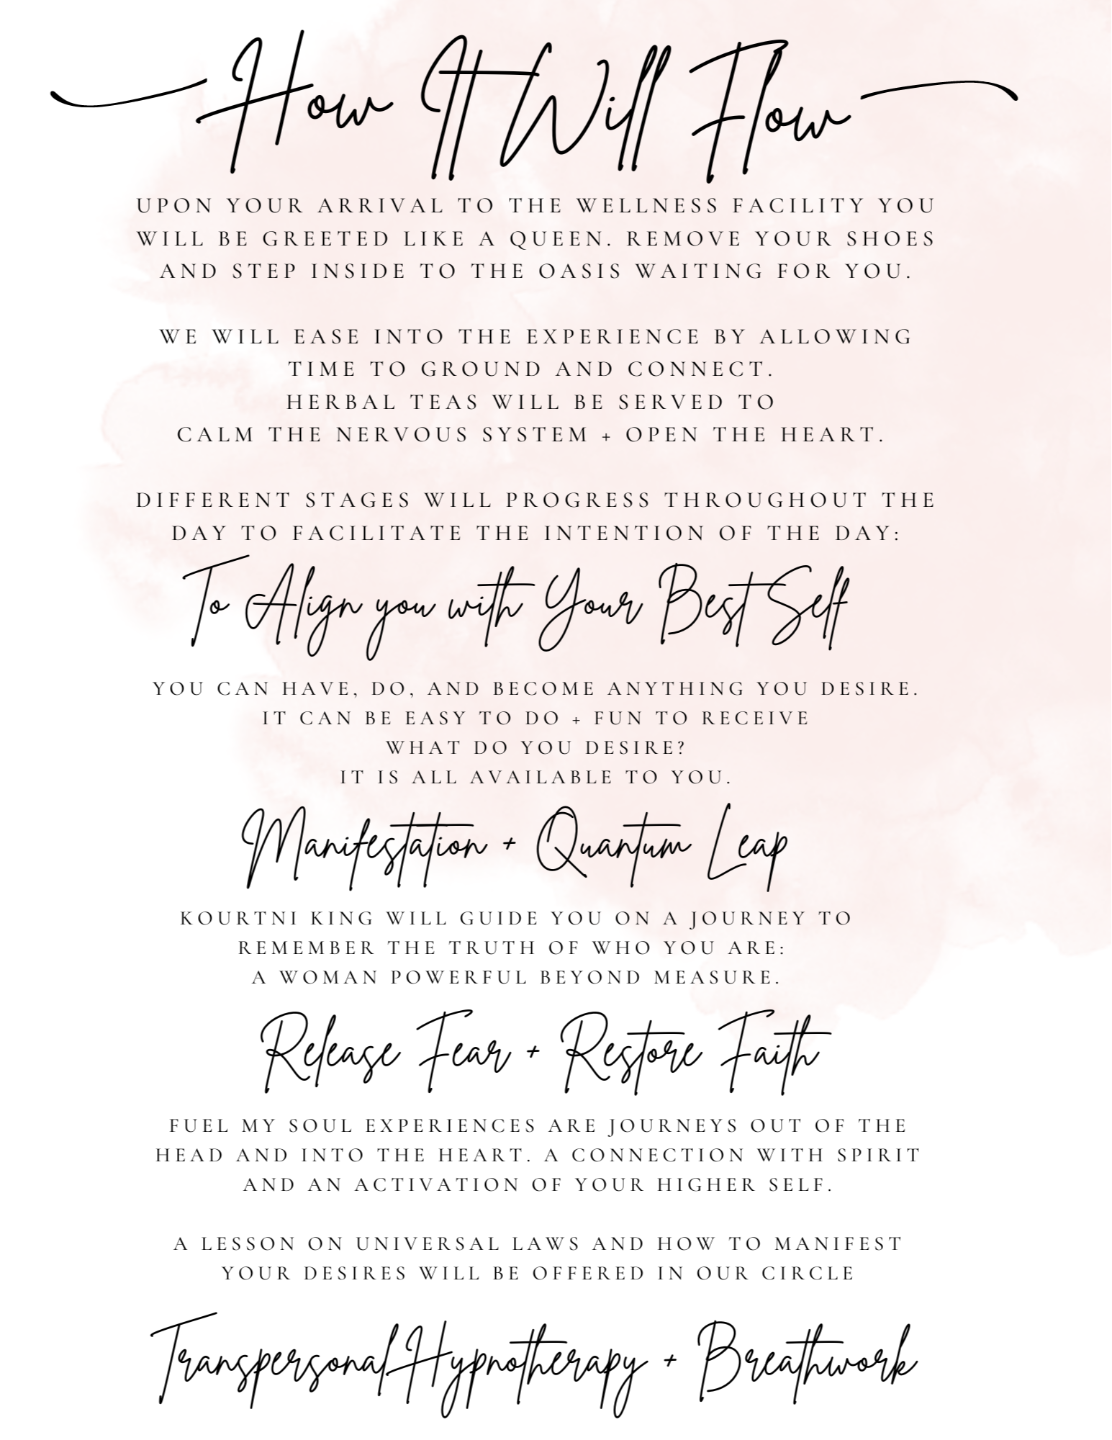 How It Will Flow
UPON YOUR ARRIVAL TO THE WELLNESS FACILITY YOU
WILL BE GREETED LIKE A QUEEN. REMOVE YOUR SHOES
AND STEP INSIDE TO THE OASIS WAITING FOR YOU.
WE WILL EASE INTO THE EXPERIENCE BY ALLOWING
TIME TO GROUND AND CONNECT.
HERBAL TEAS WILL BE SERVED TO
CALM THE NERVOUS SYSTEM + OPEN THE HEART.
DIFFERENT STAGES WILL PROGRESS THROUGHOUT THE
DAY TO FACILITATE THE INTENTION OF THE DAY:
To Align you with Your Best Self
YOU CAN HAVE, DO, AND BECOME ANYTHING YOU DESIRE.
IT CAN BE EASY TO DO + FUN TO RECEIVE
WHAT DO YOU DESIRE?
IT IS ALL AVAILABLE TO YOU.
Manifestation + Quantum Leap
KOURTNI KING WILL GUIDE YOU ON A JOURNEY TO
REMEMBER THE TRUTH OF WHO YOU ARE:
A WOMAN POWERFUL BEYOND MEASURE.
Release Fear + Restore Faith
FUEL MY SOUL EXPERIENCES ARE JOURNEYS OUT OF THE
HEAD AND INTO THE HEART. A CONNECTION WITH SPIRIT
AND AN ACTIVATION OF YOUR HIGHER SELF.
A LESSON ON UNIVERSAL LAWS AND HOW TO MANIFEST
YOUR DESIRES WILL BE OFFERED IN OUR CIRCLE
Transpersonal Hypnotherapy + Breathwork